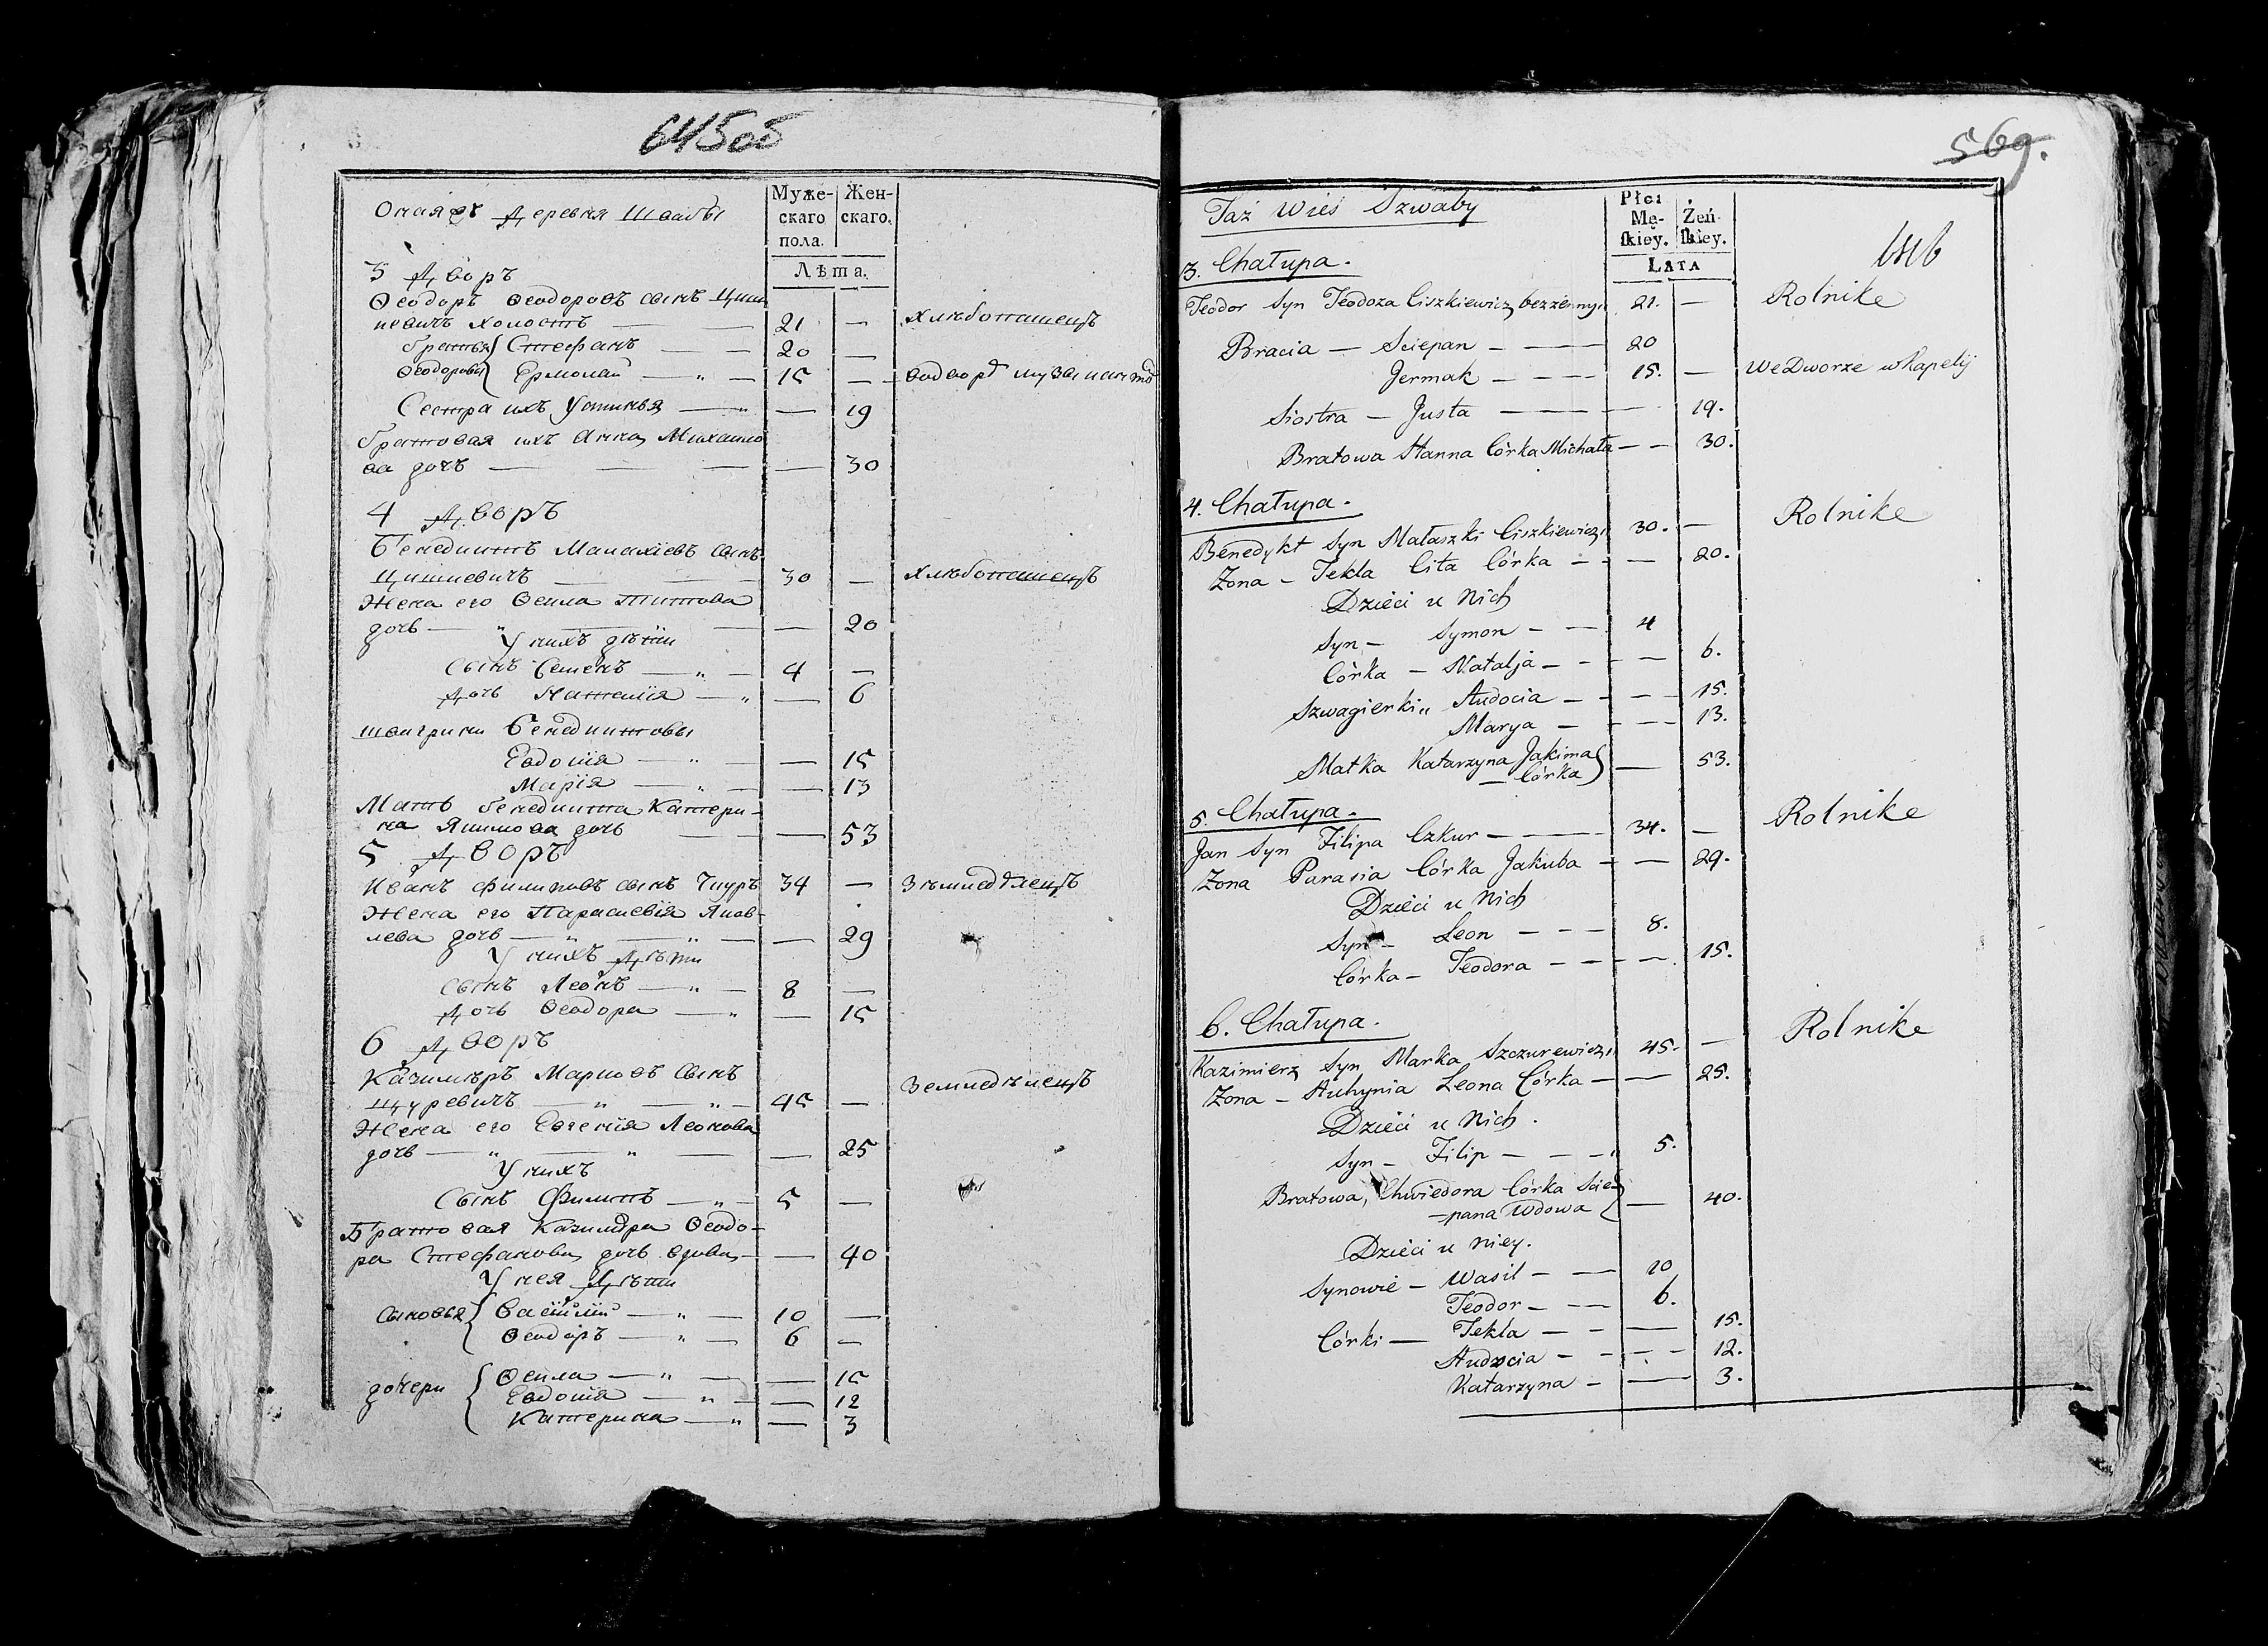 645об
Оная жъ Деревня Швабы
Муже-
скаго
пола.
Жен-
скаго.
Лѣта.
3 Дворъ
Ѳеодоръ Ѳеодоровъ сынъ Циш
кевичъ холостъ — — 21 — хлѣбопашецъ
братья { Стефанъ — — 20 —
Ѳеодоровы { Ермолай — „ — 15 — вдворѣ музыкантѡ
Сестра ихъ Устинья — „ — 19
братовая ихъ Анна Михайло
ва дочь — — — — 30
4 Дворъ
Бенедиктъ Малахіевъ сынъ
Цишкевичъ — — 30 — хлѣбопашецъ
Жена его Ѳекла Титова
дочь — „ — — — 20
У нихъ дѣти
Сынъ Семенъ — „ — 4 —
Дочь Наталія — „ — 6
швагрики Бенедиктовы
Евдокія — „ — 15
Марія — „ — — 13
Мать бенедикта Катери-
на Якимова дочь — — 53
5 Дворъ
Иванъ Филиповъ сынъ Чкуръ 34 — Земледѣлецъ
Жена его Параскевія Яков-
лева дочь — „ — „ — — 29
У нихъ Дѣти
Сынъ Леонъ — „ — 8 —
Дочь Ѳеодора — „ — 15
6 Дворъ
Казимѣръ Марковъ Сынъ
Щуревичъ — „ — „ — 45 — Земледѣлецъ
Жена его Евгенія Леонова
дочь — „ — „ — — 25
У нихъ
Сынъ Филипъ — „ — 5 —
Братовая Казимѣра Ѳеодо-
ра Стефанова дочь вдова — — 40
У нея Дѣти
Сыновья { Василій — „ — 10 —
{ Ѳеодоръ — „ — 6 —
дочери { Ѳекла — „ — — 15
{ Евдокія — „ — — 12
{ Катерина — „ — 3
569.
646
Taż Wieś Szwaby
Płci
Mę-
ſkiey.
Żeń-
ſkiey.
LATA
3. Chałupa.
Teodor Syn Teodora Ciszkiewicz bezżenny 21. — Rolnike
Bracia — Sciepan — — 20
Jermak — — — 15. — We Dworze w kapelij
Siostra — Justa — — — 19.
Bratowa Hanna Córka Michała — — 30.
4. Chałupa.
Benedykt Syn Małaszki Ciszkiewicz 30. — Rolnike
Zona — Tekla Cita Córka — — — 20.
Dzieci u Nich
Syn — Symon — — 4
Córka — Natalja — — — 6.
Szwagierki „ Audocia — — — 15.
Marya — — — 13.
Matka Katarzyna Jakima }
— Córka } — 53.
5. Chałupa.
Jan Syn Filipa Czkur — — 34. — Rolnike
Zona Parasia Córka Jakuba — — 29.
Dzieci u Nich
Syn — Leon — — — 8.
Córka — Teodora — — — 15.
6. Chałupa.
Kazimierz Syn Marka Szczurewicz 45. — Rolnike
Zona — Auhynia Leona Córka — — 25.
Dzieci u Nich.
Syn — Filip — — — 5.
Bratowa, Chwiedora Córka Scie- }
—pana Wdowa { — 40.
Dzieci u Niey.
Synowie — Wasil — — 10
Teodor — — 6.
Córki — Tekla — — — 15.
Audocia — — — 12.
Katarzyna — — 3.